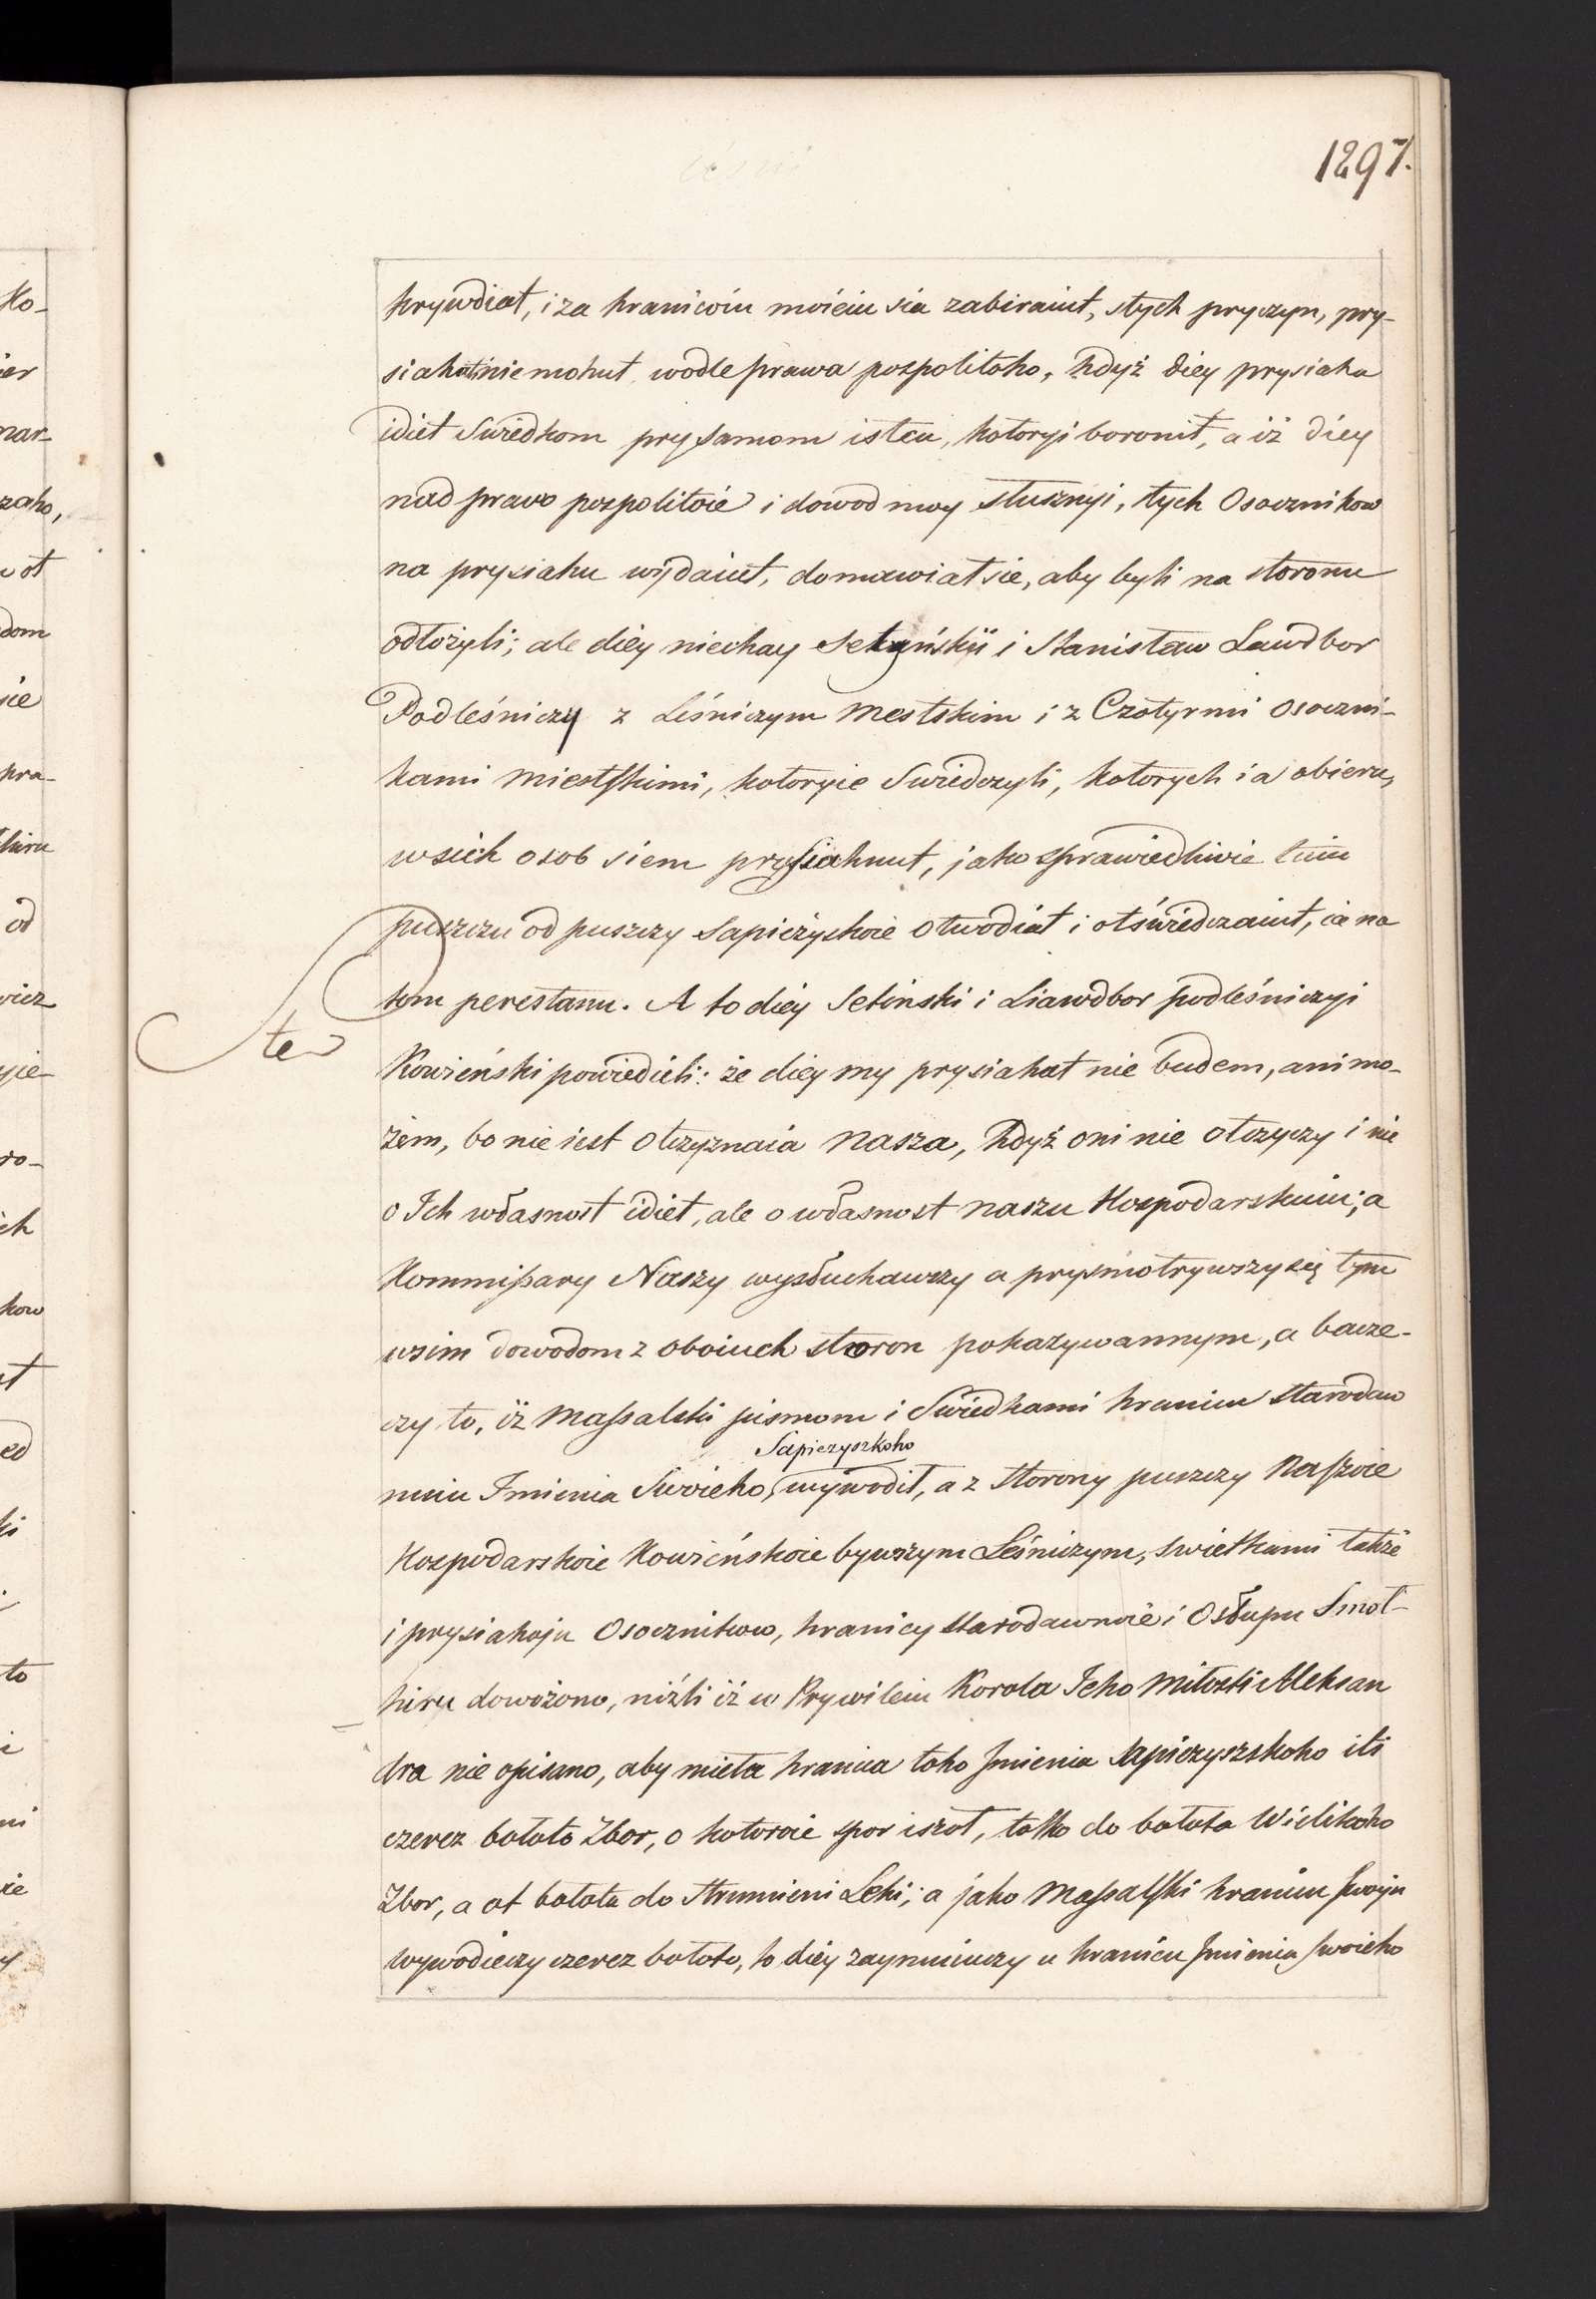 1297.
krywdiat, i za hranicoiu moieiu sia zabiraiut, stych pryczyn, pry-
siahatinie mohut, wodle prawa pospolitoho, hdyż diey prysiaha
idiet Swiedkom pry samom istcu, kotoryi boronit, a iż diey
nad prawo pospolitoie i dowod moy słusznyi, tych Osocznikow
na prysiahu wydaiut, domawiał sie, aby byli na storonu
odłożyli; ale diey niechay Setyńskii i Stanisław Lawdbor
Podleśniczy z Leśniczym Mestskim i z Czotyrmi Osoczni-
kami Miestskimi, kotoryie Swiedczyli, kotorych ia obieru,
wsich osob siem prysiahnut, jako sprawiedliwie tuiu
puszczu od puszczy Sapieżyskoie otwodiat i otświedczaiut, ia na
tom perestanu. A to diey Setinski i Liawdbor podleśniczyi
te
Kowieński powiedieli: że diey my prysiahat nie budem, ani mo-
żem, bo nie iest otczyznaia nasza, hdyż oni nie otczyczy i nie
o Ich własnost idiet, ale o własnost naszu Hospodarskuiu; a
Kommissary Naszy wysłuchawszy a prysmotrywszy się tym
wsim dowodom z oboiuch storon pokazywannym, a bacze-
czy to, iż Massalski pismom i Swiedkami hranicu starodaw
nuiu Imienia Swoieho, Sapiezyszkoho wywodit, a z storony puszczy Naszoie
Hospodarskoie Kowieńskoie bywszym Leśniczym, swietkami także
i prysiahoju Osocznikow, hranicy starodawnoie i Osłupu Smol-
hiru dowożono, niżli iż w Prywileiu Korola Jeho Miłosti Aleksan
dra nie opisano, aby mieła hranica toho Imienia Sapiezyszskoho iti
czerez bołoto Zbor, o kotoroie spor iszoł, tolko do bołota Wielikoho
Zbor, a ot bołota do Strumieni Leki; a jako Massalski hranicu swoju
wywodieczy czerez bołoto, to diey zaymuiuczy u hranicu Imienia swoieho